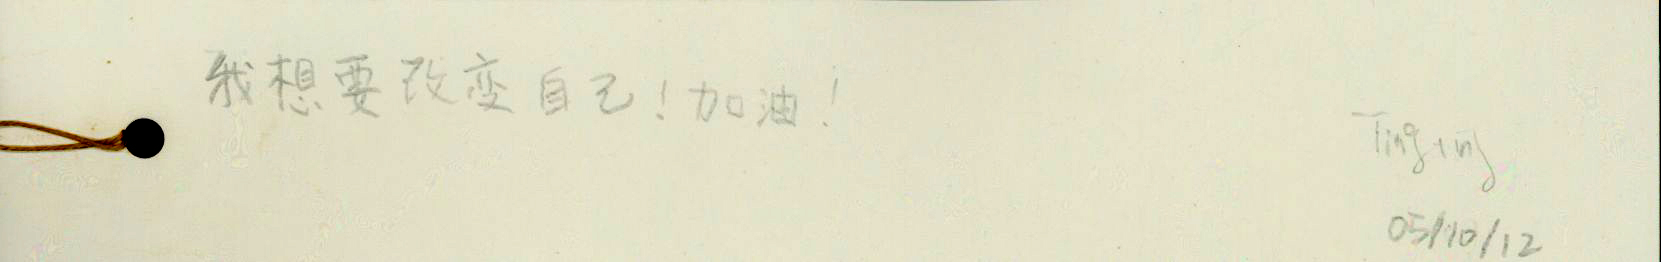 我想要改变自己！加油！
Tinging
05/10/12